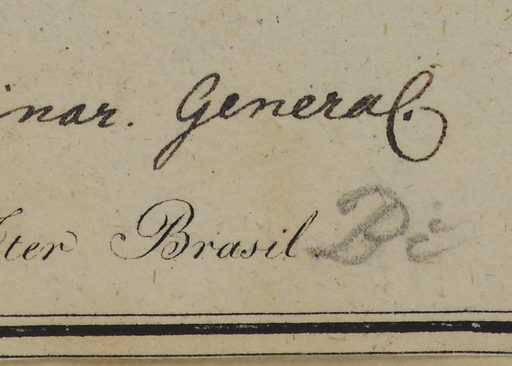 inar. General.
Iter Brasil. Di